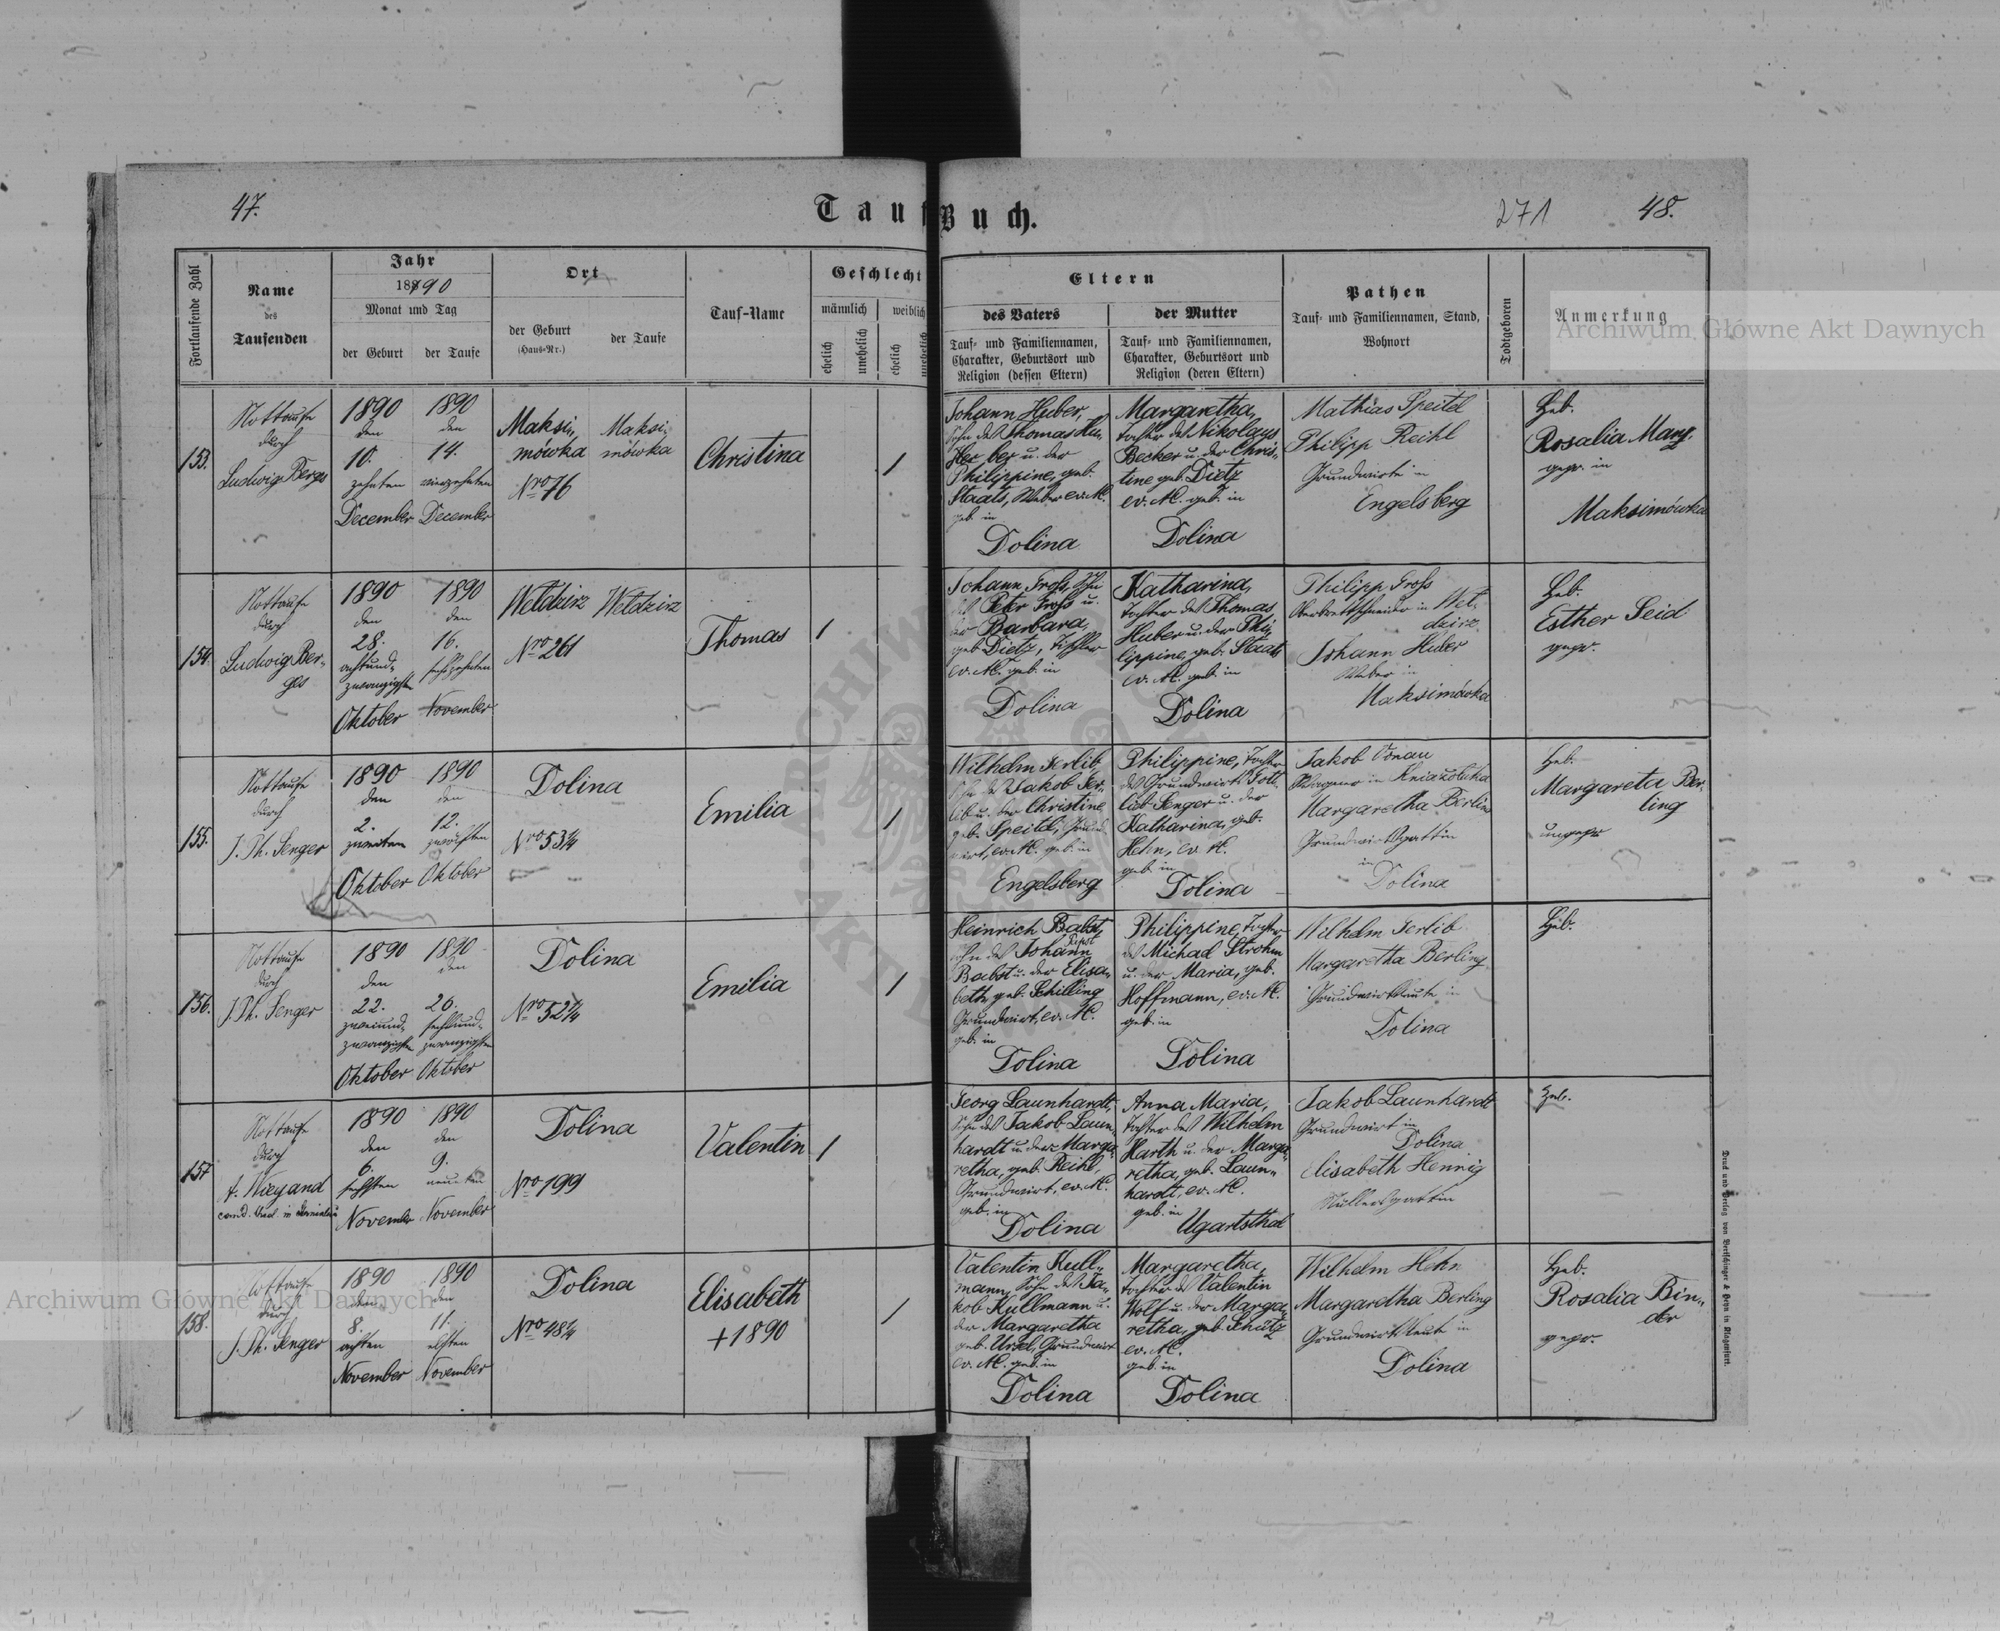 47.
Tauf-Buch.
271
48.
Fortlaufende Zahl
Name
des
Taufenden
Jahr
1890
Monat und Tag
der Geburt
der Taufe
Ort
der Geburt
(Haus-Nr.)
der Taufe
Tauf-Name
Geschlecht
männlich
weiblich
ehelich
unehelich
ehelich
unehelich
Eltern
des Vaters
Tauf- und Familiennamen,
Charakter, Geburtsort und
Religion (dessen Eltern)
der Mutter
Tauf- und Familiennamen,
Charakter, Geburtsort und
Religion (deren Eltern)
Pathen
Tauf- und Familiennamen, Stand,
Wohnort
Todtgeboren
Anmerkung
Archiwum Główne Akt Dawnych
153.
Nottaufe
durch
Ludwig Berges
1890
den
10.
zehnten
December
1890
den
14.
vierzehnten
December
Maksi-
mówka
Nro 76
Maksi-
mówka
Christina
1
Johann Huber,
Sohn des Thomas Hu-
ber u. der
Philippine, geb.
Staats, Weber ev. A.C.
geb. in
Dolina
Margaretha,
Tochter des Nikolaus
Becker u. der Chris-
tine geb. Dietz
ev. A.C. geb. in
Dolina
Mathias Speitel
Philipp Reihl
Grundwirte in
Engelsberg
Heb.
Rosalia Mang.
gepr. in
Maksimówka
154.
Nottaufe
durch
Ludwig Ber-
ges
1890
den
28.
achtund-
zwanzigsten
Oktober
1890
den
16.
sechszehnten
November
Weldzirz
Nro 261
Weldzirz
Thomas
1
Johann Groß, Sohn
des Peter Groß u.
der Barbara,
geb. Dietz, Tischler
ev. A.C. geb. in
Dolina
Katharina,
Tochter des Thomas
Huber u. der Phi-
lippine, geb. Staats
ev. A.C. geb. in
Dolina
Philipp Groß
Oberbrettschneider in Wel-
dzirz
Johann Huber
Weber in
Maksimówka
Heb.
Esther Seid
gepr.
155.
Nottaufe
durch
J. Ph. Senger
1890
den
2.
zweiten
Oktober
1890
den
12.
zwölften
Oktober
Dolina
Nro 53¼
Emilia
1
Wilhelm Gerlib,
Sohn des Jakob Ger-
lib u. der Christine
geb. Speitel, Grund-
wirt, ev. A.C. geb. in
Engelsberg
Philippine, Tochter
des Grundwirts Gott-
lieb Senger u. der
Katharina, geb.
Hehn, ev. A.C.
geb. in
Dolina
Jakob Donau
Wagner in Kniazoluka
Margaretha Berling
Grundwirtsgattin
in
Dolina
Heb.
Margareta Ber-
ling
ungepr
156.
Nottaufe
durch
J. Ph. Senger
1890
den
22.
zweiund-
zwanzigsten
Oktober
1890
den
26.
sechsund-
zwanzigsten
Oktober
Dolina
Nro 52¼
Emilia
1
Heinrich Babst,
Sohn des Johann
Babst u. der Elisa-
beth geb. Schilling
Grundwirt, ev. A.C.
geb. in
Dolina
Philippine, Tochter
des Michael Strohm
u. der Maria, geb.
Hoffmann, ev. A.C.
geb. in
Dolina
Wilhelm Gerlib
Margaretha Berling
Grundwirtsleute in
Dolina
Heb.
157
Nottaufe
durch
A. Wiegand
cand. theol. in
1890
den
6.
sechsten
November
1890
den
9.
neunten
November
Dolina
Nro 199
Valentin
1
Georg Launhardt,
Sohn des Jakob Laun-
hardt u. der Marga-
retha, geb. Reihl,
Grundwirt, ev. A.C.
geb. in
Dolina
Anna Maria,
Tochter des Wilhelm
Harth u. der Marga-
retha, geb. Laun-
hardt, ev. A.C.
geb. in
Ugartsthal
Jakob Launhardt
Grundwirt in
Dolina
Elisabeth Hennig
Müllersgattin
Heb.
158.
Nottaufe
durch
J. Ph. Senger
1890
den
8.
achten
November
1890
den
11.
elften
November
Dolina
Nro 48¼
Elisabeth
+ 1890
1
Valentin Kull-
mann, Sohn des Ja-
kob Kullmann u.
der Margaretha
geb. Ursel, Grundwirt
ev. A.C. geb. in
Dolina
Margaretha,
Tochter des Valentin
Wolf u. der Marga-
retha, geb. Schütz
ev. A.C.
geb. in
Dolina
Wilhelm Hehn
Margaretha Berling
Grundwirtsleute in
Dolina
Heb.
Rosalia Bin-
der
gepr.
Archiwum Główne Akt Dawnych
Druck und Verlag von Bertschinger & Heyn in Klagenfurt.